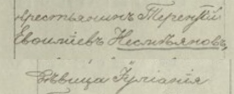 крестьянинъ Терентій
Евоиліевъ Несмѣяновъ,
дѣвица Іуліанія